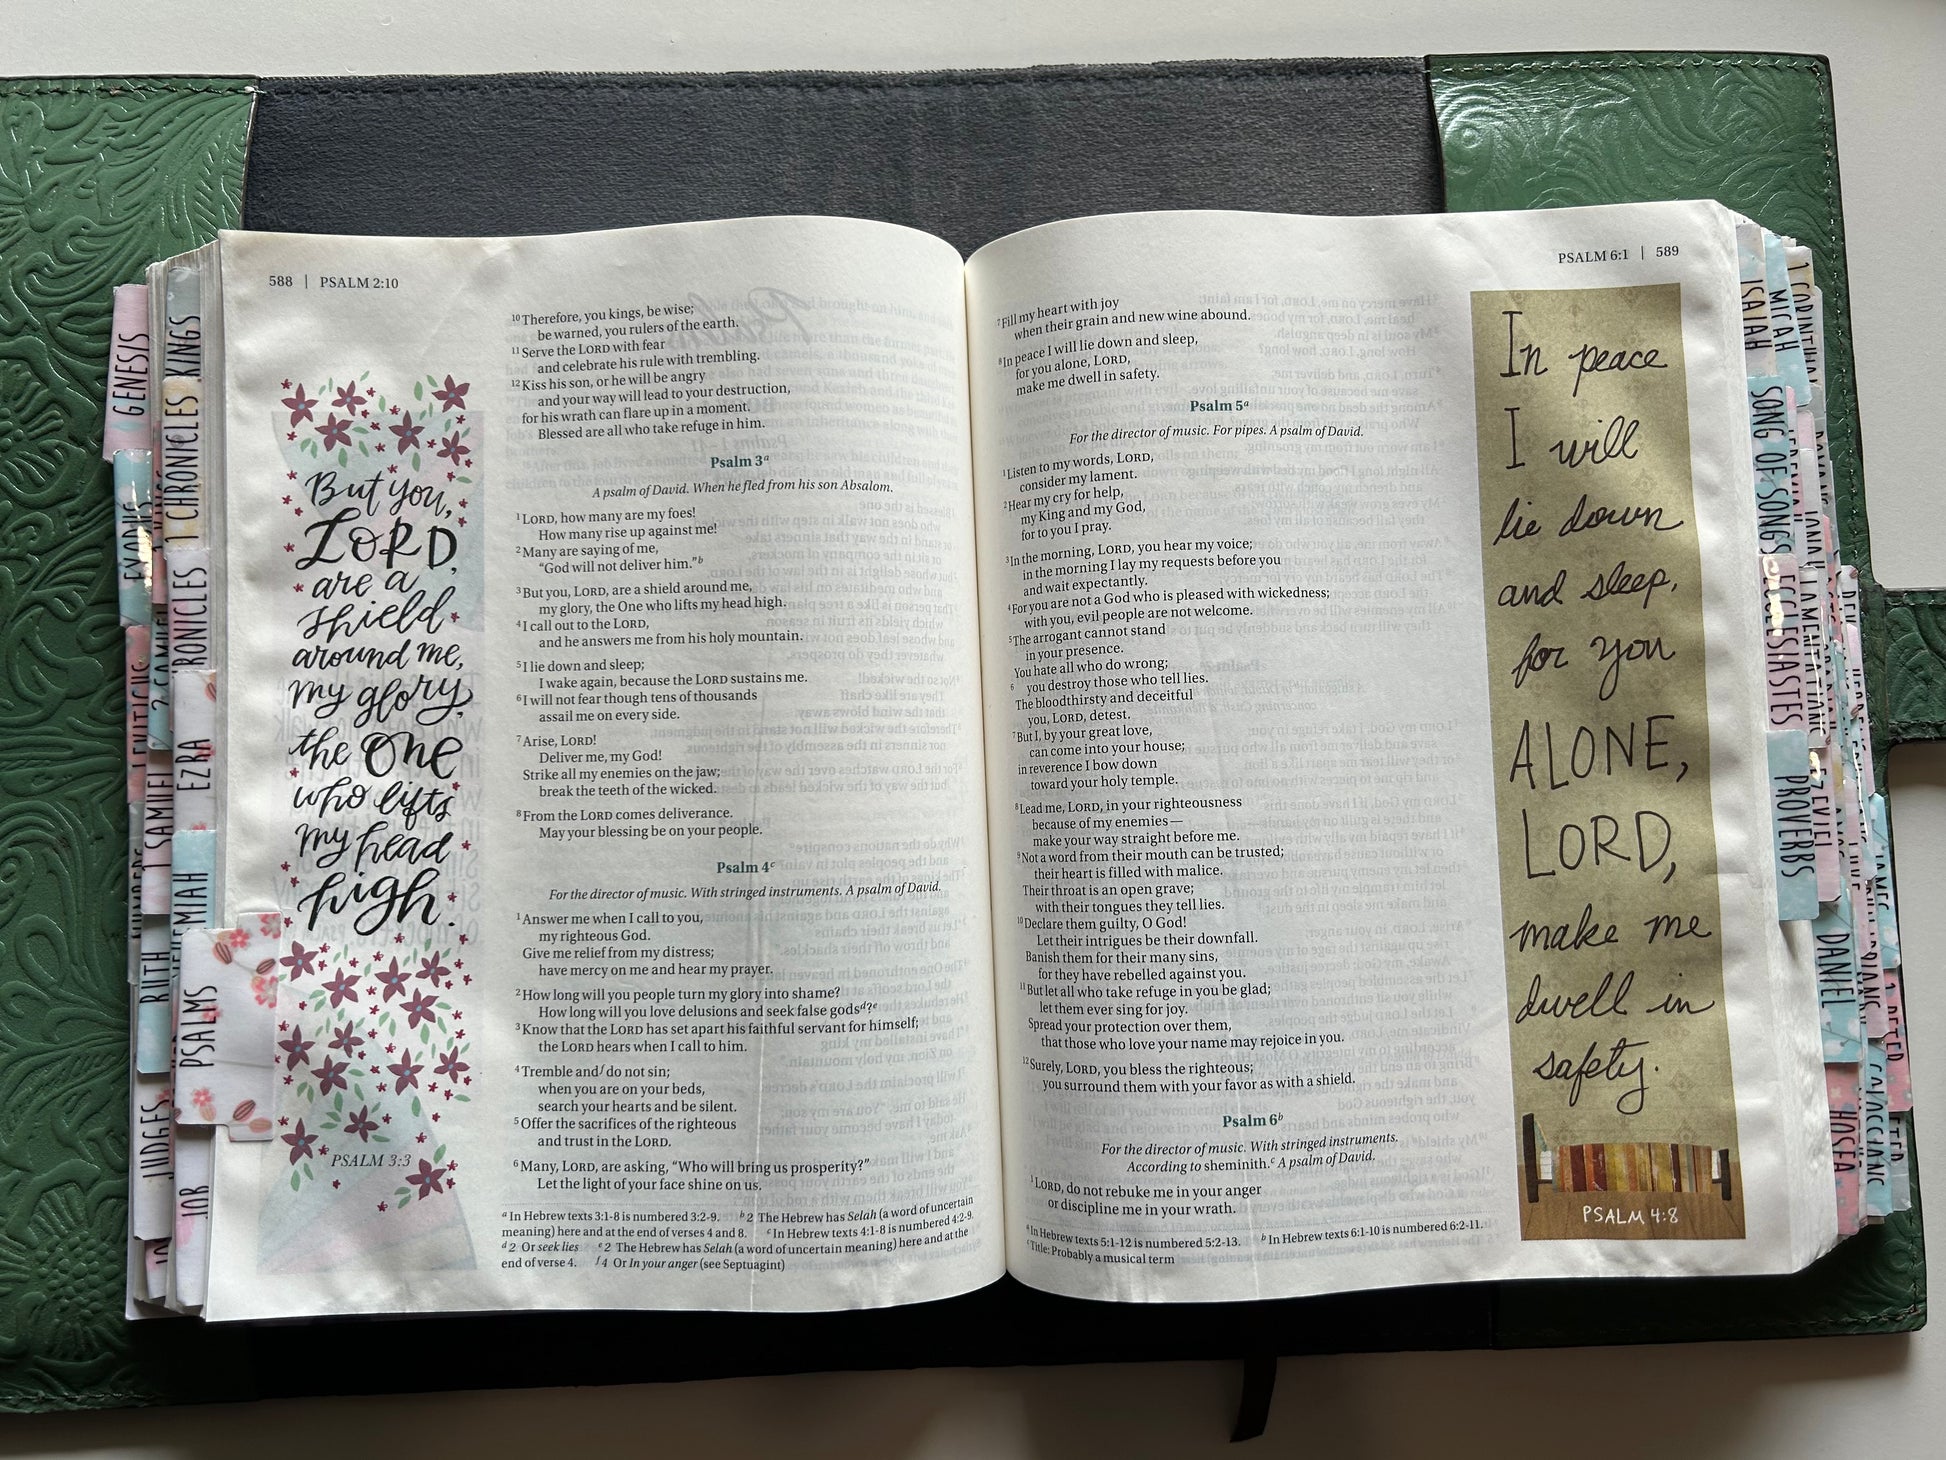 588 | PSALM 2:10
But you,
LORD,
are a
shield
around me,
my glory,
the One
who lifts
my head
high.
PSALM 3:3
10 Therefore, you kings, be wise;
be warned, you rulers of the earth.
11 Serve the LORD with fear
and celebrate his rule with trembling.
12 Kiss his son, or he will be angry
and your way will lead to your destruction,
for his wrath can flare up in a moment.
Blessed are all who take refuge in him.
Psalm 3a
A psalm of David. When he fled from his son Absalom.
1 LORD, how many are my foes!
How many rise up against me!
2 Many are saying of me,
“God will not deliver him.”b
3 But you, LORD, are a shield around me,
my glory, the One who lifts my head high.
4 I call out to the LORD,
and he answers me from his holy mountain.
5 I lie down and sleep;
I wake again, because the LORD sustains me.
6 I will not fear though tens of thousands
assail me on every side.
7 Arise, LORD!
Deliver me, my God!
Strike all my enemies on the jaw;
break the teeth of the wicked.
8 From the LORD comes deliverance.
May your blessing be on your people.
Psalm 4c
For the director of music. With stringed instruments. A psalm of David.
1 Answer me when I call to you,
my righteous God.
Give me relief from my distress;
have mercy on me and hear my prayer.
2 How long will you people turn my glory into shame?
How long will you love delusions and seek false godsd?e
3 Know that the LORD has set apart his faithful servant for himself;
the LORD hears when I call to him.
4 Tremble andf do not sin;
when you are on your beds,
search your hearts and be silent.
5 Offer the sacrifices of the righteous
and trust in the LORD.
6 Many, LORD, are asking, “Who will bring us prosperity?”
Let the light of your face shine on us.
a In Hebrew texts 3:1-8 is numbered 3:2-9. b 2 The Hebrew has Selah (a word of uncertain
meaning) here and at the end of verses 4 and 8. c In Hebrew texts 4:1-8 is numbered 4:2-9.
d 2 Or seek lies e 2 The Hebrew has Selah (a word of uncertain meaning) here and at the
end of verse 4. f 4 Or In your anger (see Septuagint)
PSALM 6:1 | 589
7 Fill my heart with joy
when their grain and new wine abound.
8 In peace I will lie down and sleep,
for you alone, LORD,
make me dwell in safety.
Psalm 5a
For the director of music. For pipes. A psalm of David.
1 Listen to my words, LORD,
consider my lament.
2 Hear my cry for help,
my King and my God,
for to you I pray.
3 In the morning, LORD, you hear my voice;
in the morning I lay my requests before you
and wait expectantly.
4 For you are not a God who is pleased with wickedness;
with you, evil people are not welcome.
5 The arrogant cannot stand
in your presence.
You hate all who do wrong;
6 you destroy those who tell lies.
The bloodthirsty and deceitful
you, LORD, detest.
7 But I, by your great love,
can come into your house;
in reverence I bow down
toward your holy temple.
8 Lead me, LORD, in your righteousness
because of my enemies—
make your way straight before me.
9 Not a word from their mouth can be trusted;
their heart is filled with malice.
Their throat is an open grave;
with their tongues they tell lies.
10 Declare them guilty, O God!
Let their intrigues be their downfall.
Banish them for their many sins,
for they have rebelled against you.
11 But let all who take refuge in you be glad;
let them ever sing for joy.
Spread your protection over them,
that those who love your name may rejoice in you.
12 Surely, LORD, you bless the righteous;
you surround them with your favor as with a shield.
Psalm 6b
For the director of music. With stringed instruments.
According to sheminith.c A psalm of David.
1 LORD, do not rebuke me in your anger
or discipline me in your wrath.
a In Hebrew texts 5:1-12 is numbered 5:2-13. b In Hebrew texts 6:1-10 is numbered 6:2-11.
c Title: Probably a musical term
In peace
I will
lie down
and sleep,
for you
ALONE,
LORD,
make me
dwell in
safety.
PSALM 4:8
GENESIS
EXODUS
LEVITICUS
JUDGES
RUTH
1 SAMUEL
KINGS
1 CHRONICLES
EZRA
NEHEMIAH
JOB
PSALMS
PROVERBS
ECCLESIASTES
SONG OF SONGS
ISAIAH
LAMENTATIONS
DANIEL
HOSEA
MICAH